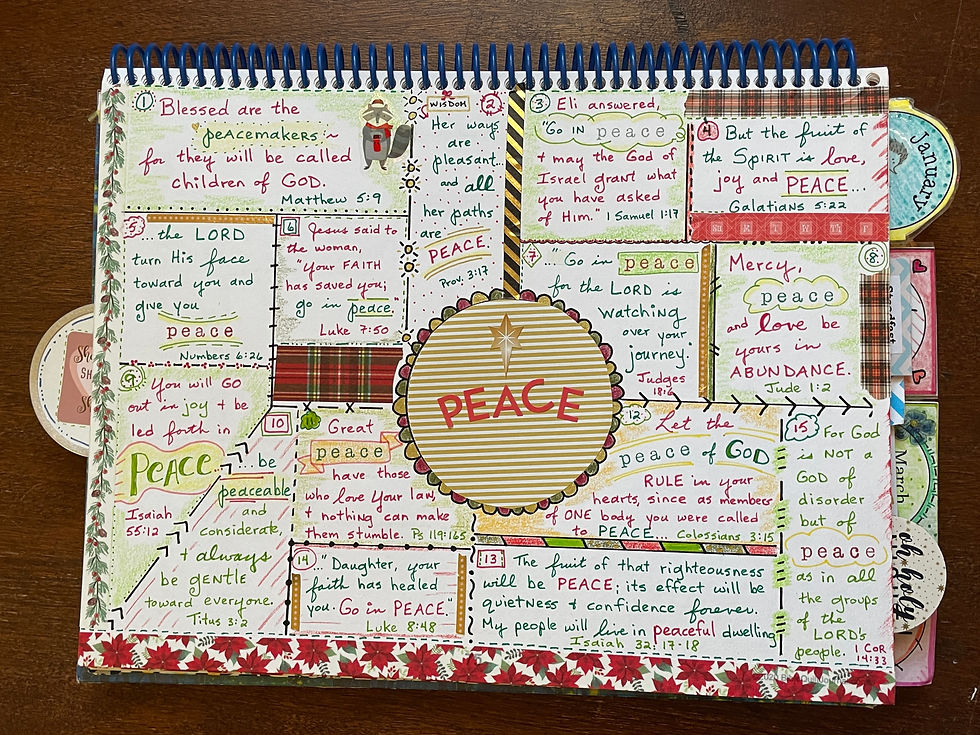 1
Blessed are the
peacemakers~
for they will be called
children of GOD.
Matthew 5:9
WISDOM
2
Her ways
are
pleasant...
and all
her paths
are
PEACE.
Prov. 3:17
3
Eli answered,
"Go IN peace
+ may the God of
Israel grant what
you have asked
of Him." 1 Samuel 1:17
4
But the fruit of
the SPIRIT is love,
joy and PEACE...
Galatians 5:22
S M T W T F
5
...the LORD
turn His face
toward you and
give you
peace
Numbers 6:26
6
Jesus said to
the woman,
"Your FAITH
has saved you;
go in peace."
Luke 7:50
7
"Go in peace
for the LORD is
watching
over your
journey."
Judges
18:6
8
Mercy,
peace
and love be
yours in
ABUNDANCE.
Jude 1:2
PEACE
9
You will GO
out in joy + be
led forth in
PEACE...
Isaiah
55:12
10
...be
peaceable
and
considerate,
+ always
be gentle
toward everyone.
Titus 3:2
11
Great
peace
have those
who love your law,
+ nothing can make
them stumble. Ps 119:165
12
Let the
peace of GOD
RULE in your
hearts, since as members
of ONE body you were called
to PEACE... Colossians 3:15
13
The fruit of that righteousness
will be PEACE; its effect will be
quietness + confidence forever.
My people will live in peaceful dwelling
Isaiah 32:17-18
14
..."Daughter, your
faith has healed
you. Go in PEACE."
Luke 8:48
15
For God
is NOT a
GOD of
disorder
but of
peace
as in all
the groups
of the
LORD's
people. 1 COR
14:33
January
March
oh holy